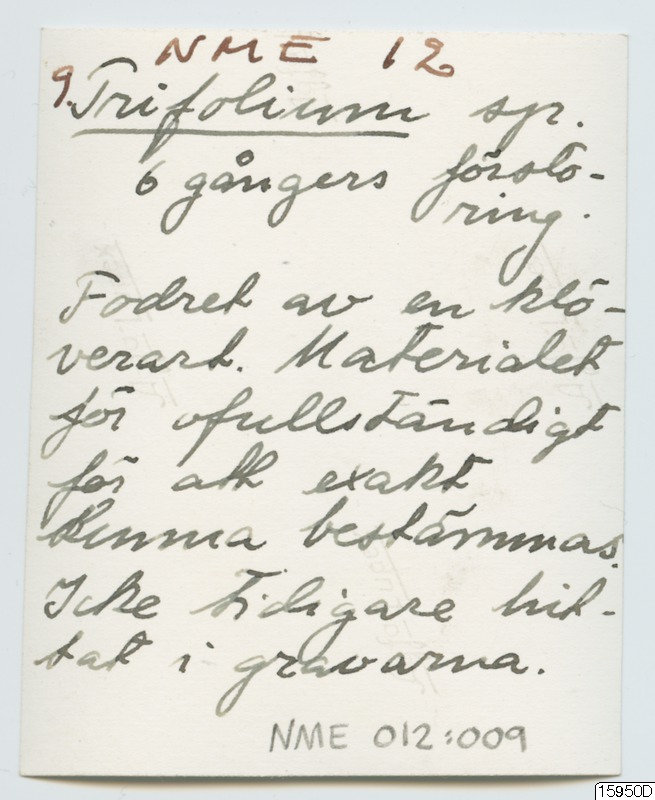 NME 12
9. Trifolium sp.
6 gångers försto-
ring.
Fodret av en klö-
verart. Materialet
för ofullständigt
för att exakt
kunna bestämmas.
Icke tidigare hit-
tat i gravarna.
NME 012:009
15950D